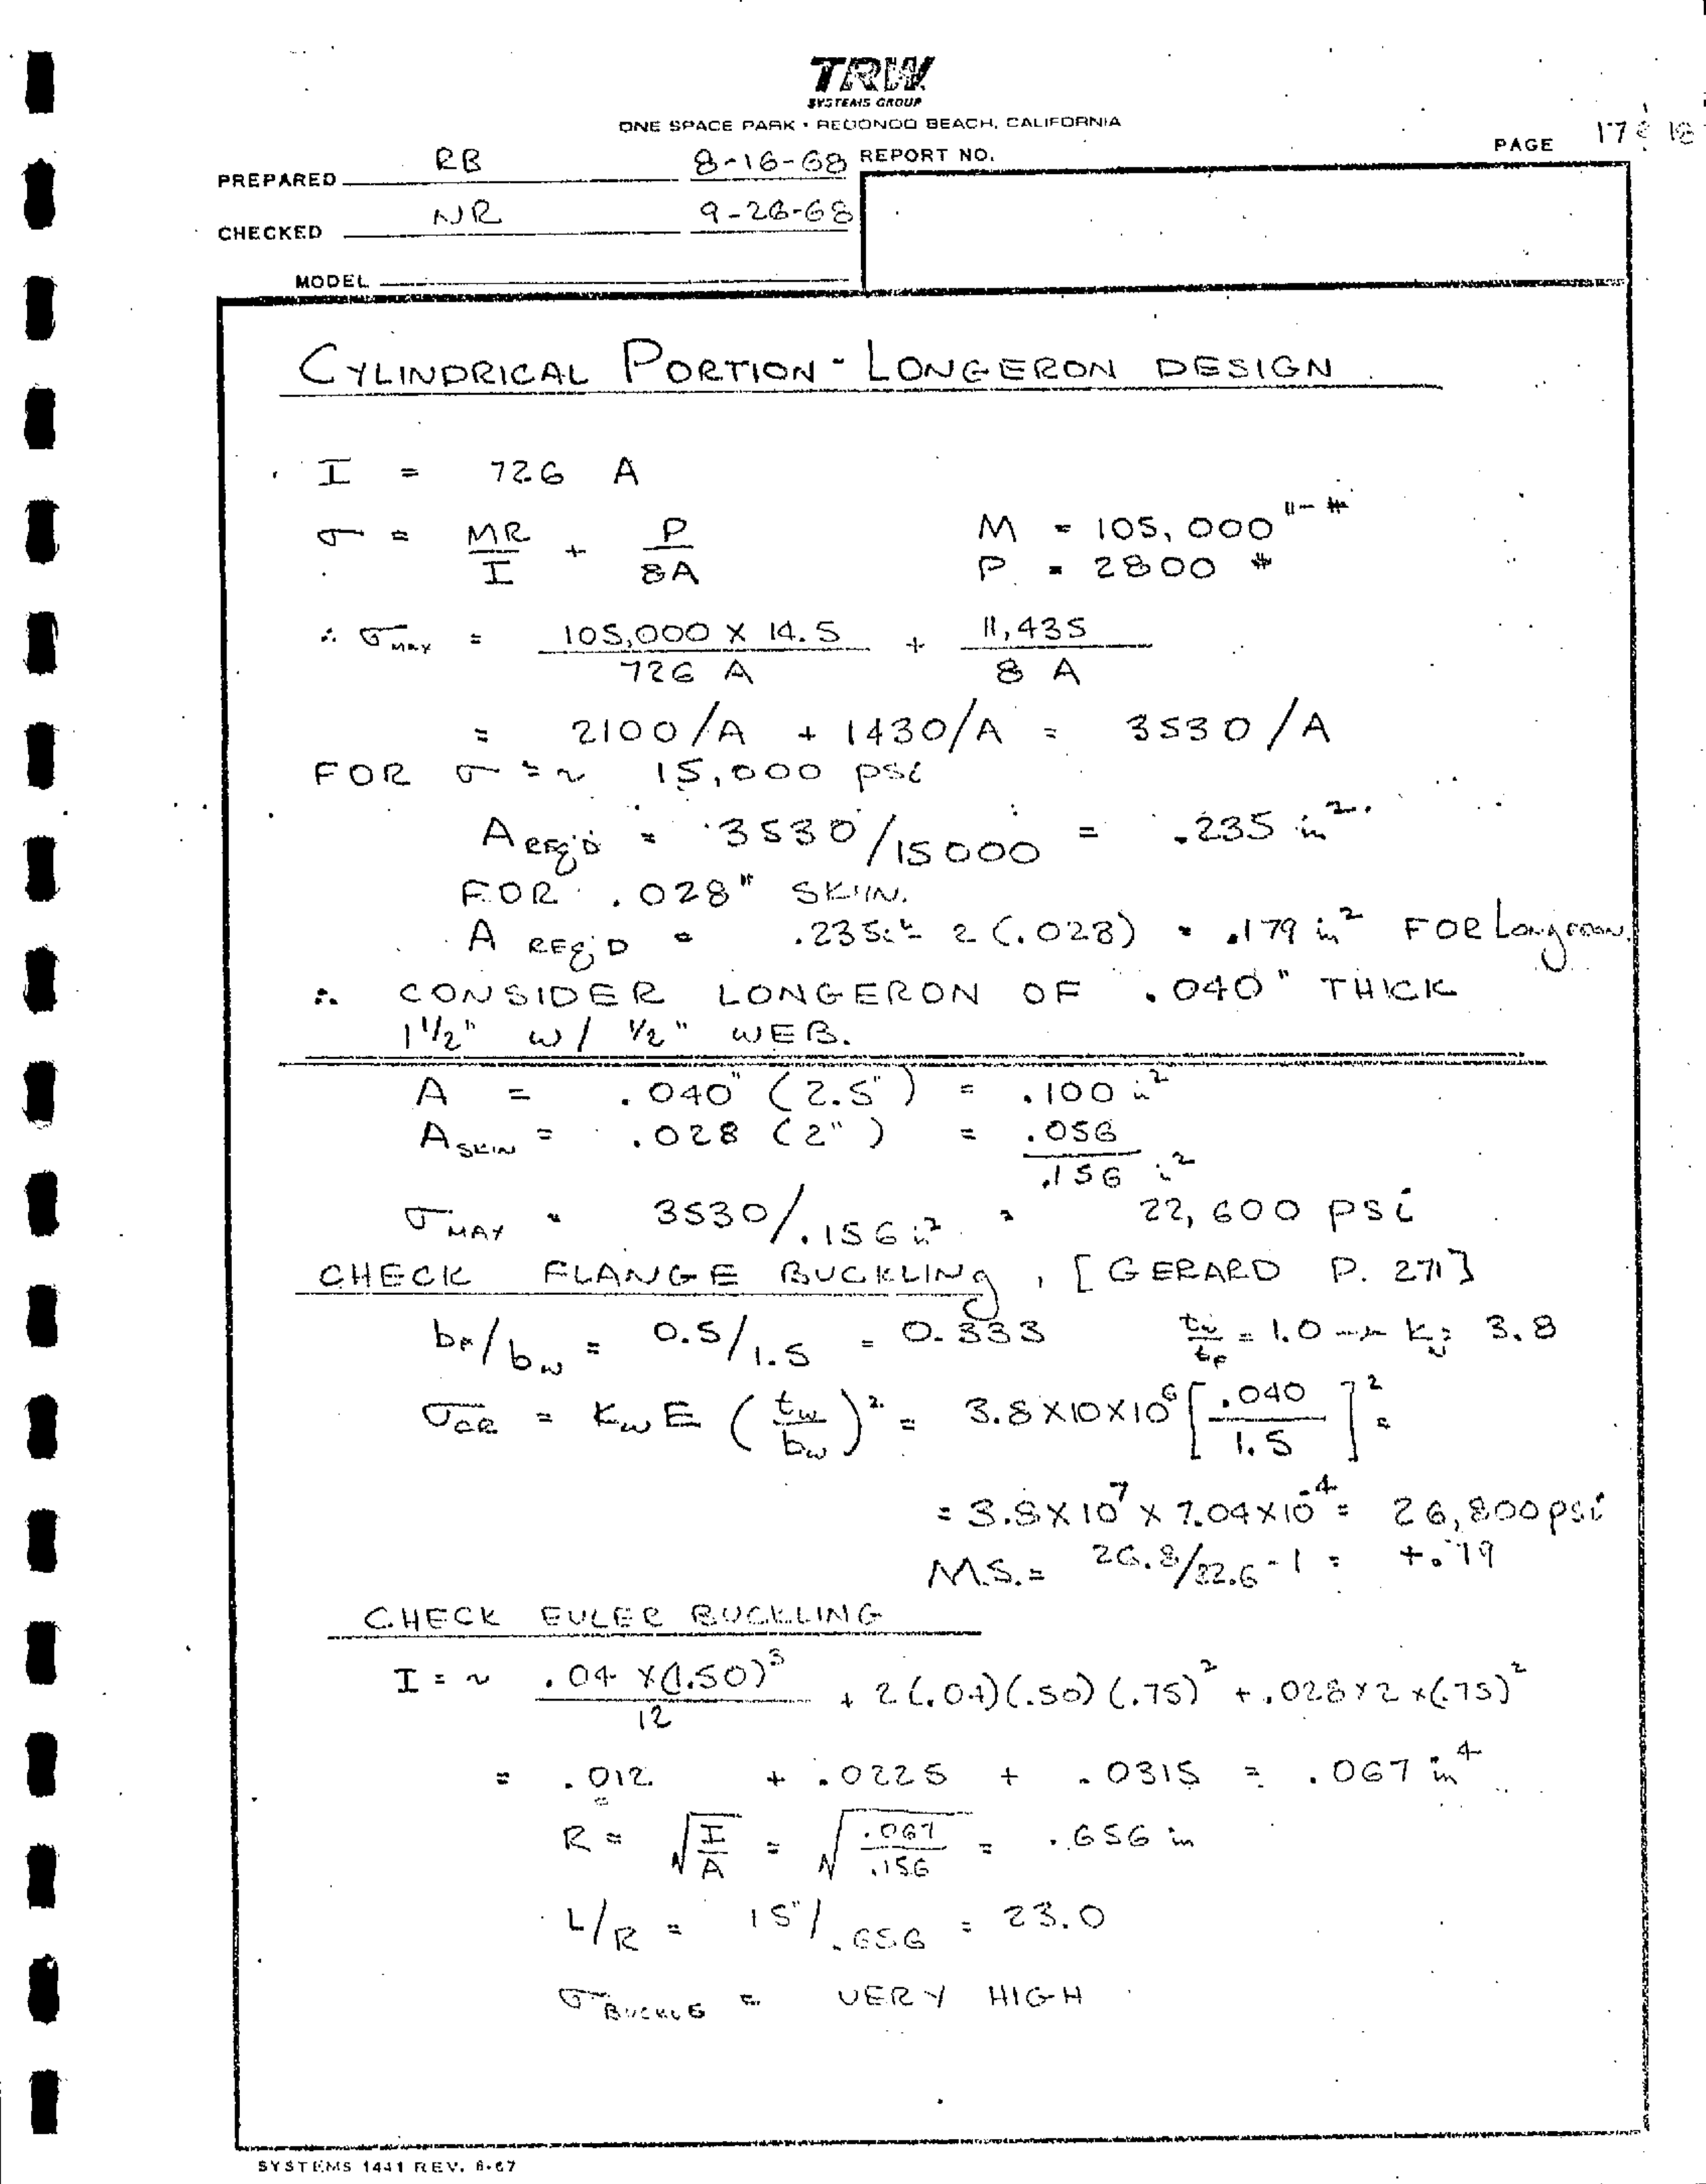 TRW
SYSTEMS GROUP
ONE SPACE PARK • REDONDO BEACH, CALIFORNIA
PAGE 17 & 18
PREPARED RB 8-16-68 REPORT NO.
CHECKED NR 9-26-68
MODEL
CYLINDRICAL PORTION - LONGERON DESIGN
I = 726 A
σ = MR/I + P/8A M = 105,000 "-#
P = 2800 #
∴ σMAX = 105,000 X 14.5/726 A + 11,435/8 A
= 2100/A + 1430/A = 3530/A
FOR σ = ~ 15,000 psi
A REQ'D = 3530/15000 = .235 in².
FOR .028" SKIN.
A REQ'D = .235 - 2(.028) = .179 in² FOR Longeron.
∴ CONSIDER LONGERON OF .040" THICK
1 1/2" W/ 1/2" WEB.
A = .040" (2.5") = .100 in²
A SKIN = .028 (2") = .056
.156 in²
σMAX = 3530/.156 in² = 22,600 psi
CHECK FLANGE BUCKLING, [GERARD P. 271]
bF/bw = 0.5/1.5 = 0.333 tw/tF = 1.0 → Kw = 3.8
σCR = KwE (tw/bw)² = 3.8X10X10⁶ [.040/1.5]² =
= 3.8X10⁷ X 7.04X10⁻⁴ = 26,800 psi
M.S. = 26.8/22.6 - 1 = +.19
CHECK EULER BUCKLING
I = ~ .04 X(1.50)³/12 + 2(.04)(.50)(.75)² + .028X2X(.75)²
= .012 + .0225 + .0315 = .067 in⁴
R = √I/A = √.067/.156 = .656 in
L/R = 15"/.656 = 23.0
σBUCKLE = VERY HIGH
SYSTEMS 1441 REV. 8-67